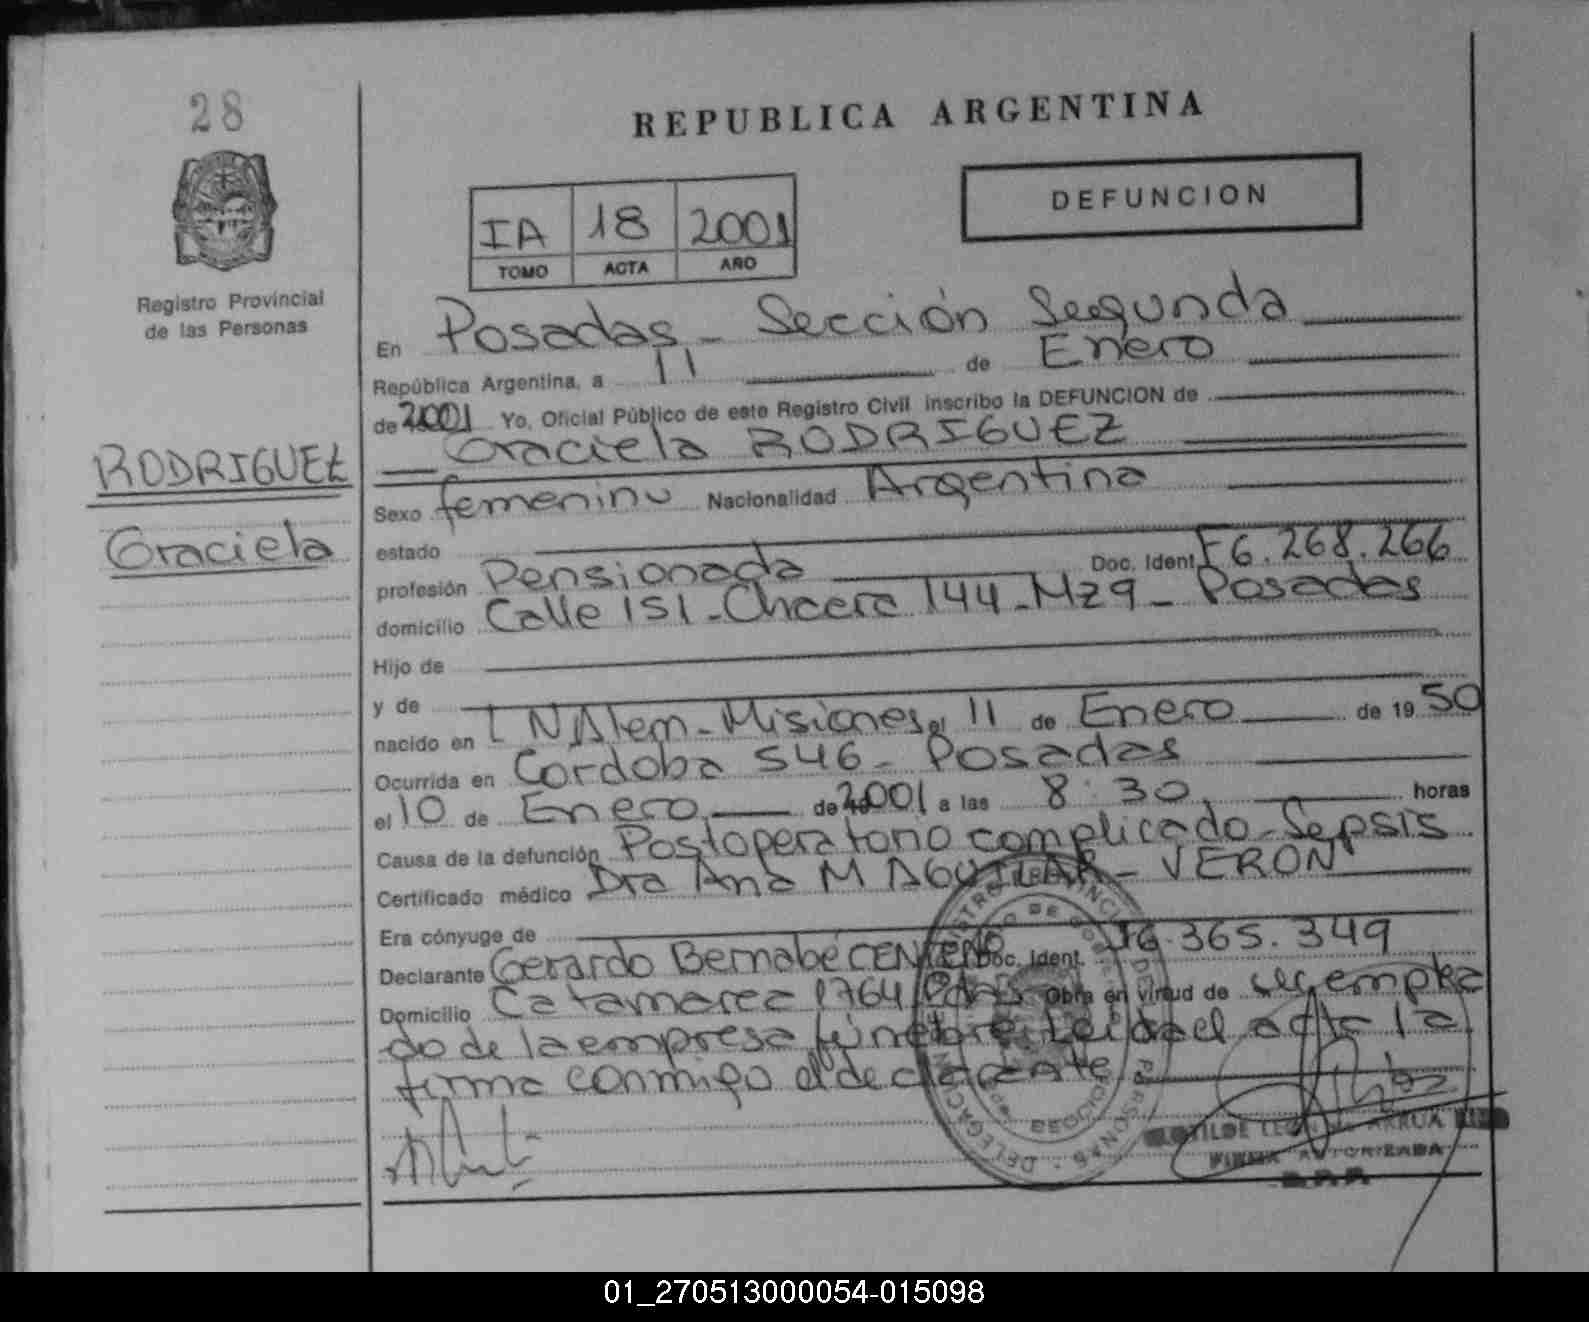 28
REPUBLICA ARGENTINA
DEFUNCION
IA 18 2001
TOMO ACTA AÑO
Registro Provincial
de las Personas
RODRIGUEZ
Graciela
En Posadas - Sección Segunda
República Argentina, a 11 de Enero
de 2001 Yo, Oficial Público de este Registro Civil inscribo la DEFUNCION de
Graciela RODRIGUEZ
Sexo femenino Nacionalidad Argentina
estado
profesión Pensionada Doc. Ident. F6.268.266
domicilio Calle 151 - Chacra 144 - Mz 9 - Posadas
Hijo de
y de
nacido en L N Alem - Misiones el 11 de Enero de 1950
Ocurrida en Cordoba 546 - Posadas
el 10 de Enero de 2001 a las 8:30 horas
Causa de la defunción Postoperatorio complicado - Sepsis
Certificado médico Dra Ana M AGUILAR - VERON
Era cónyuge de
Declarante Gerardo Bernabé CENTENO Doc. Ident. 16.365.349
Domicilio Catamarca 1764 Obra en virtud de ser emplea
do de la empresa fúnebre Leida el acta la
firma conmigo el declarante
FIRMA AUTORIZADA
01_270513000054-015098